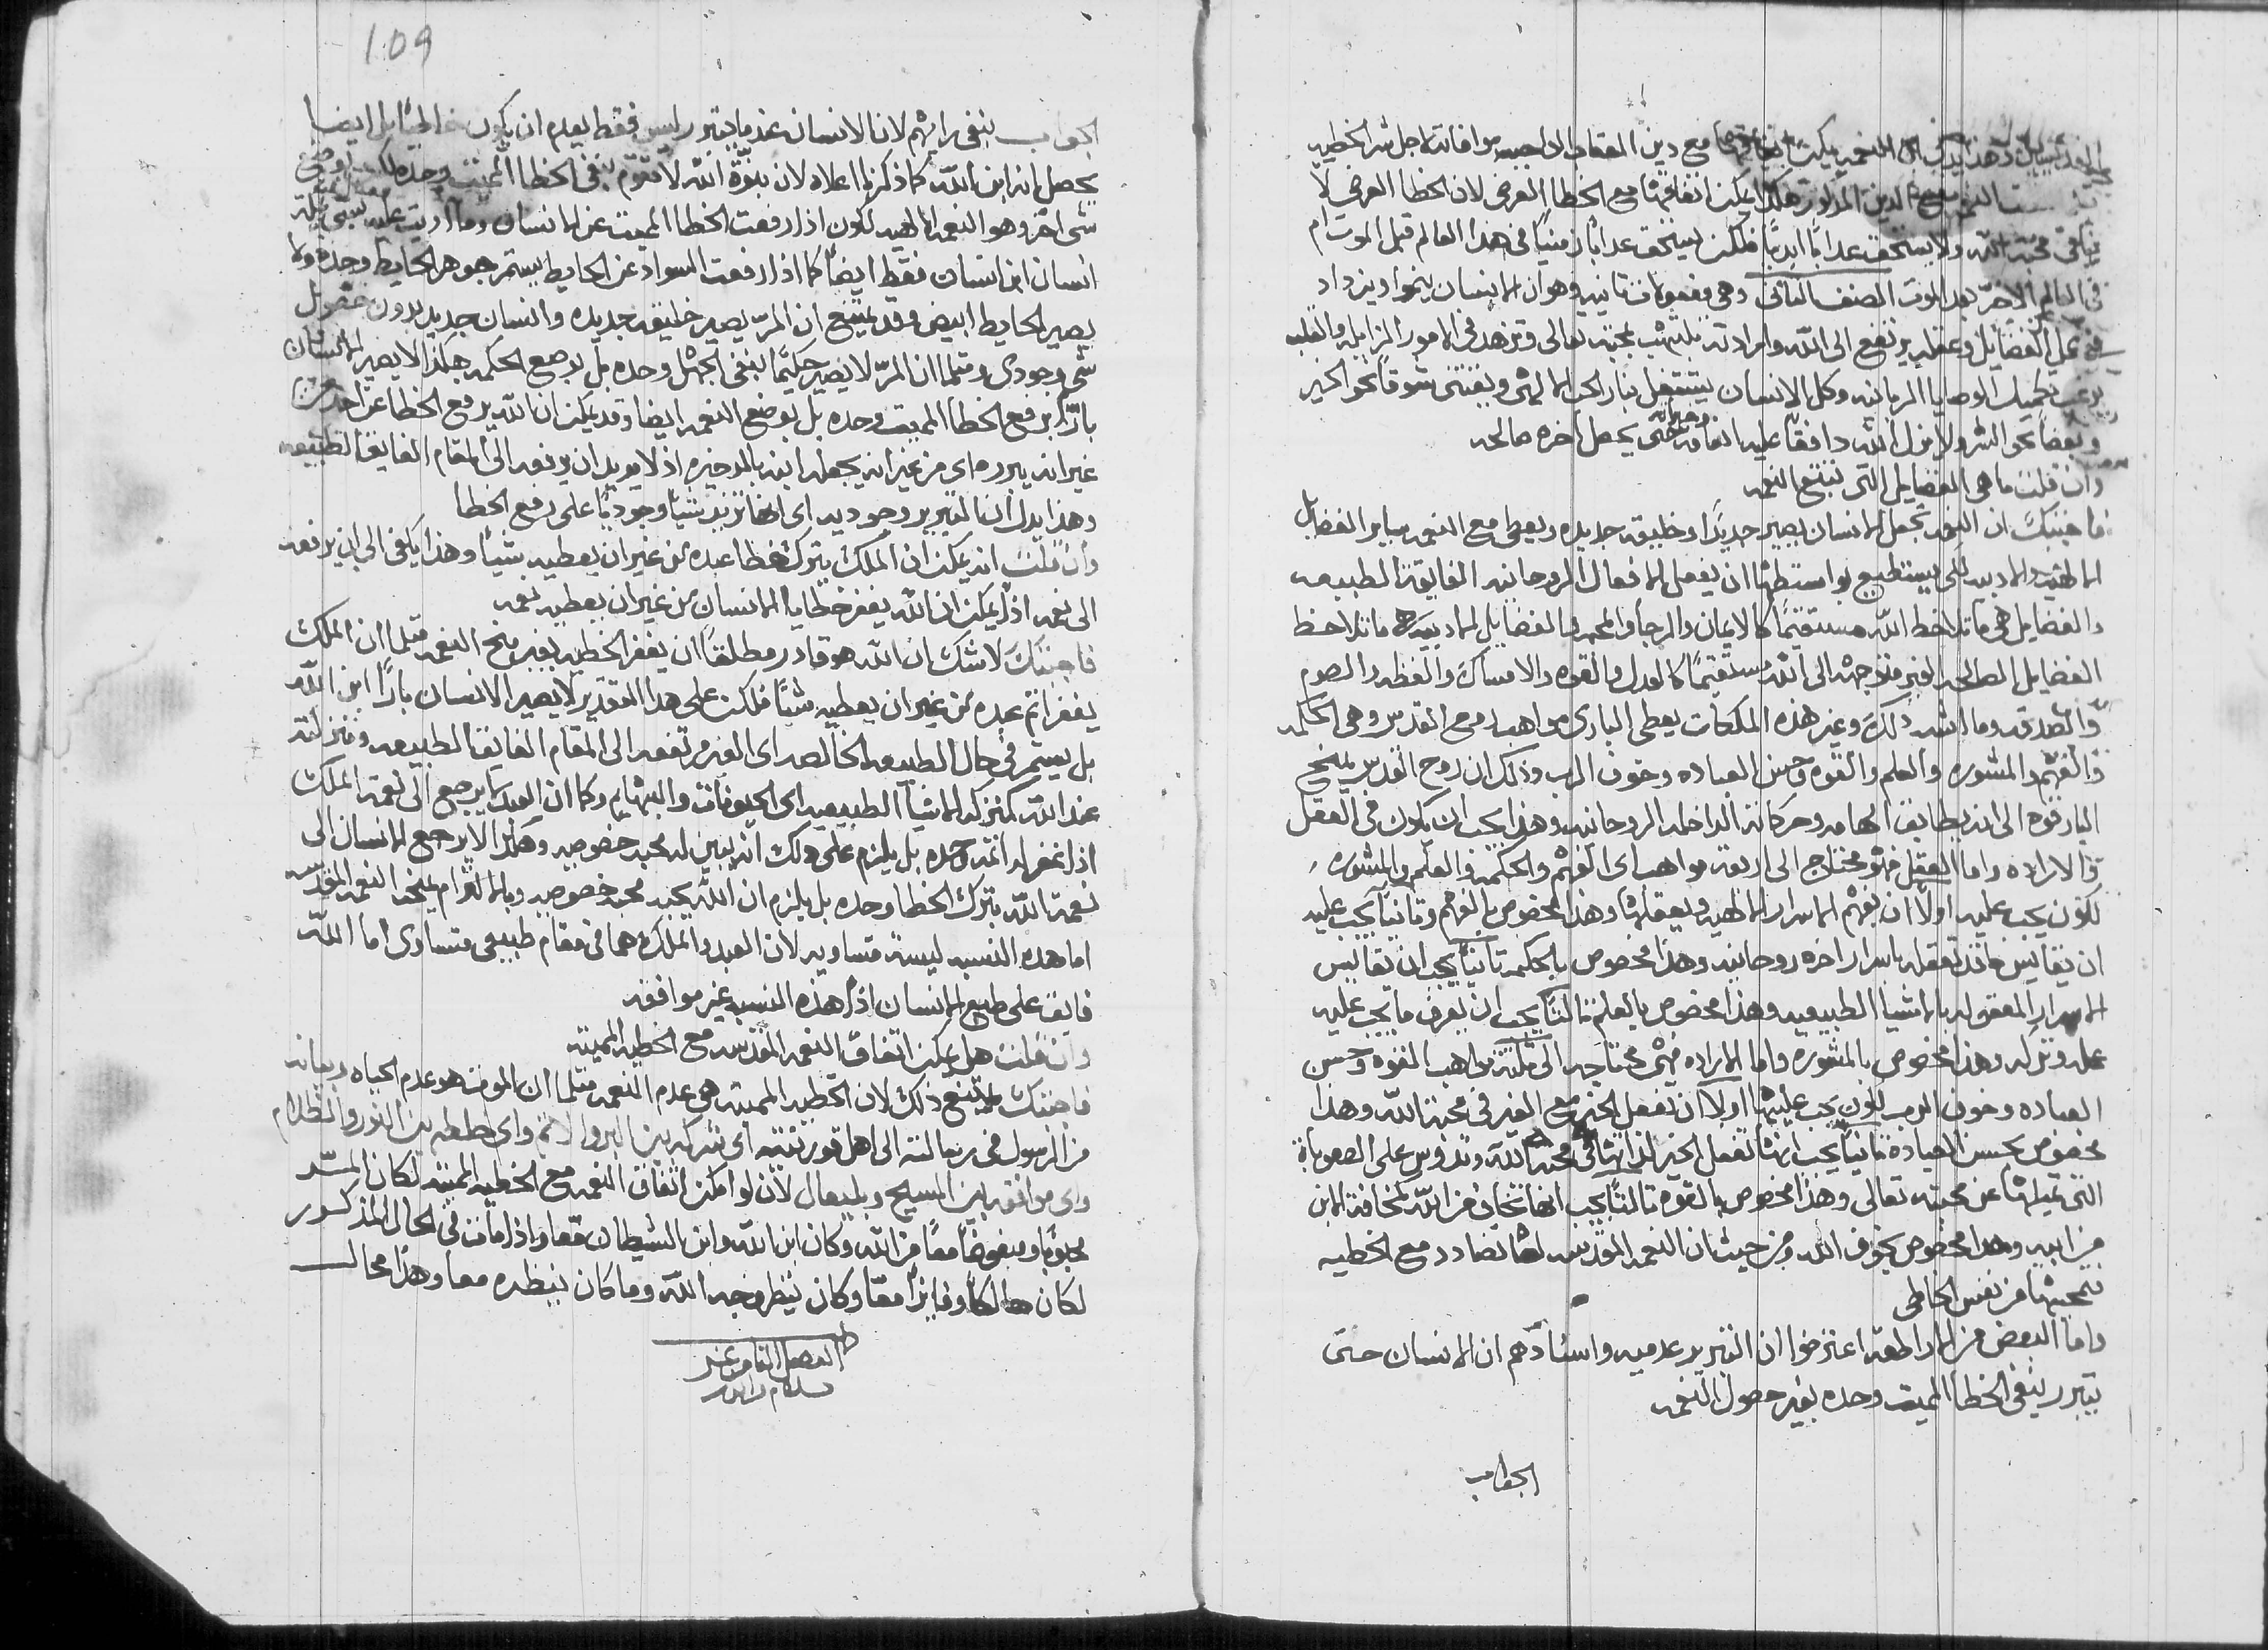 وهذا يدل ان النعمه يمكن اتفاقها مع دين العقاب الواجب موافاته لاجل شر الخطيه
مع الدين المذكور هكذا يمكن اتفاقها مع الخطا العرضي لان الخطا العرضي لا
ينافي محبة الله ولا يستحق عدابًا ابديًا فلكن يستحق عدابًا زمنيًا في هذا العالم قبل الموت ام
في العالم الاخر بعد الموت الصنف الثاني وهي مفعولات تانيه وهو ان الانسان ينموا ويزداد
في عمل الفضايل وعقله يرتفع الى الله وارادته تلتهب بمحبته تعالى وتزهد في الامور الزايله والقلب
يرغب تكميل الوصايا الربانيه وكل الانسان يشتعل بنار الحب الالهي ويفتني شوقًا نحو الخير
وبغضًا نحو الشر ولا يزل الله دافقًا عليه انعامه وخيراته حتى يحصل اخره صالحه
وان قلت ما هي الفضايل التي تتبع النعمه
فاجبتك ان النعمه تجعل الانسان يصير جديدًا وخليقه جديده ويعطى مع النعمه ساير الفضايل
الالهيه والادبيه لكي يستطيع بواستطها ان يفعل الافعال الروحانيه الفايقة الطبيعه
والفضايل هي ما تلاحظ الله مستقيمًا كالايمان والرجا والمحبه فالفضايل الادبيه هي ما تلاحظ
الفضايل الصالحه الغير متوجهه الى الله مستقيمًا كالعدل والقوه والامساك والفطنه والصوم
والصدقه وما اشبه ذلك وغير هذه الملكات يعطي الباري مواهب روح القدس وهي الحكمه
والفهم والمشوره والعلم والقوه وحسن العباده وخوف الرب وذلك ان روح القدس يمنح
البار قوه الى انه يطابق الهامه وحركاته الداخله الروحانيه وهذا يجب ان يكون في العقل
والاراده واما العقل فهو محتاج الى اربعة مواهب اى الفهم والحكمه والعلم والمشوره
لكون يجب عليه اولًا ان يفهم الاسرار الالهيه ويعقلها وهذا مخصوص بالفهم وتانيًا يجب عليه
ان يقايس ما قد تعقله باسرار اخره روحانيه وهذا مخصوص بالحكمه تانيًا يجب ان يقايس
الاسرار المعقوله بالاشيا الطبيعيه وهذا مخصوص بالعلم تالتًا يجب ان يعرف ما يجب عليه
عمله وتركه وهذا مخصوص بالمشوره واما الاراده فهي محتاجه الى تلتة مواهب القوه وحسن
العباده وخوف الرب لكون يجب عليها اولًا ان تفعل الخير مع الغير في محبة الله وهذا
مخصوص بحسن العباده تانيًا يجب انها تفعل الخير لذاتها في محبة الله وتدوس على الصعوبات
التي تميلها عن محبته تعالى وهذا مخصوص بالقوه تالتًا يجب انها تخاف من الله كمخافة الابن
من ابيه وهذا مخصوص بخوف الله ومن حيث ان النعمه المقدسه لها تضادد مع الخطيه
تمحيها من نفس الخاطي
واما البعض من الاراطقه اعترضوا ان التبرير عدميه واسنادهم ان الانسان حتى
يتبرر بنفي الخطا المميت وحده بغير حصول النعمه
الجواب
109
الجواب ينفي رايهم لان الانسان عندما يتبرر ليس فقط يعدم ان يكون خاطيًا بل ايضا
يحصل انه ابن الله كما ذكرنا اعلاه لان بنوة الله لا تقوم بنفي الخطا المميت وحده
شي اخر وهو النعمه الالهيه لكون اذا رفعت الخطا المميت عن الانسان
انسان ابن انسان فقط ايضًا كما اذا رفعت السواد عن الحايط يستمر جوهر الحايط وحده ولا
يصير الحايط ابيض وقد يمتنع ان المر يصير خليقه جديده وانسان جديد بدون حصول
شي وجودي ومتلما ان المر لا يصير حكيمًا بنفي الجهل وحده بل بوضع الحكمه هكذا لا يصير الانسان
بارًا برفع الخطا المميت وحده بل بوضع النعمه ايضا وقد يمكن ان الله يرفع الخطا عن احد من
غير انه يبرره اى من غير انه يجعله ابنه بالدخيره اذ لا يريد ان يرفعه الى المقام الفايق الطبيعه
وهذا يدل ان التبرير وجوديه اى انها تزيد شيًا وجوديًا على رفع الخطا
وان قلت انه يمكن ان الملك يترك خطا عبده من غير ان يعطيه شيًا وهذا يكفي الى ان يرفعه
الى نعمه اذًا يمكن ان الله يغفر خطايا الانسان من غير ان يعطيه نعمه
فاجبتك لا شك ان الله هو قادر مطلقًا ان يغفر الخطيه بغير منح النعمه متلما ان الملك
يغفر اتم عبده من غير ان يعطيه شيًا فلكن على هذا التقدير لا يصير الانسان بارًا ابن الله
بل يستمر في حال الطبيعه الخالصه اى الغير مرتفعه الى المقام الفايق الطبيعه ومنزلته
عند الله كمنزلة الاشيا الطبيعيه اى الحيوانات والبهايم وكما ان العبد لا يرجع الى نعمة الملك
اذا غفر له اتمه وحده بل يلزم على ذلك انه يبين له محبه خصوصيه وهكذا لا يرجع الانسان الى
نعمة الله بترك الخطا وحده بل يلزم ان الله يحبه محبه خصوصيه وبالالتزام يمنحه النعمه المقدسه
اما هذه النسبه ليست متساويه لان العبد والملك هما في مقام طبيعي متساوى اما الله
فايق على طبع الانسان اذًا هذه النسبه غير موافقه
وان قلت هل يمكن اتفاق النعمه المقدسه مع الخطيه المميته
فاجبتك يمتنع ذلك لان الخطيه المميته هي عدم النعمه متلما ان الموت هو عدم الحياه وبيانه
من الرسول في رسالته الى اهل قورنتيه اى شركه بين البر والاتم واى خلطه بين النور والظلام
واى موافقه بين المسيح وبليعال لان لو امكن اتفاق النعمه مع الخطيه المميته لكان المر
محبوبًا ومبغوضًا معًا من الله وكان ابن الله وابن الشيطان معا واذا مات في الحال المذكور
لكان هالكًا وفايزًا معًا وكان ينظر وجه الله وما كان ينظره معا وهذا محال
الفصل التامن عشر